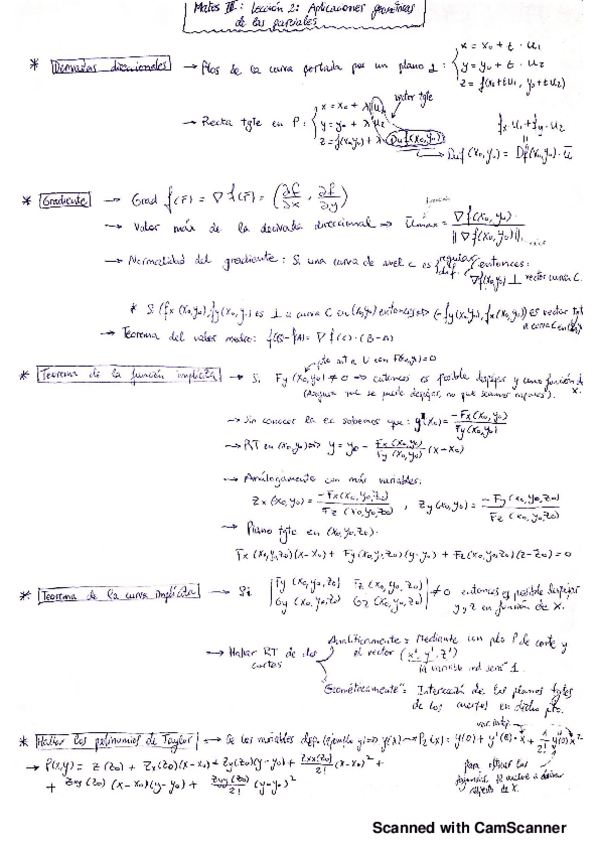 Mates III: Lección 2: Aplicaciones geométricas
de las parciales
* Derivadas direccionales → Ptos de la curva cortada por un plano ⊥: { x = x₀ + t · u₁
y = y₀ + t · u₂
z = f(x₀+tu₁, y₀+tu₂)
vector tgte
→ Recta tgte en P: { x = x₀ + λ u₁
y = y₀ + λ u₂
z = f(x₀,y₀) + λ · Duf(x₀,y₀)
fx·u₁ + fy·u₂
Duf(x₀,y₀) = Df(x₀,y₀) · ū
* Gradiente → Grad f(r̄) = ∇f(r̄) = (∂f/∂x , ∂f/∂y)
→ Valor máx de la derivada direccional → ūmax = ∇f(x₀,y₀) / ||∇f(x₀,y₀)||
→ Normalidad del gradiente: Si una curva de nivel c es regular entonces:
∇f(x₀,y₀) ⊥ curva C.
* Si (fx(x₀,y₀), fy(x₀,y₀)) es ⊥ a curva C en (x₀,y₀) entonces (-fy(x₀,y₀), fx(x₀,y₀)) es vector tgt
a curva C en
→ Teorema del valor medio: f(B)-f(A) = ∇f(C) · (B-A)
* Teorema de la función implícita → Si Fy(x₀,y₀) ≠ 0 → entonces es posible despejar y como función de x.
(Asegura que se puede despejar, no que seamos capaces).
→ Sin conocer la ec sabemos que: y'(x₀) = -Fx(x₀,y₀) / Fy(x₀,y₀)
→ RT en (x₀,y₀) → y = y₀ - Fx(x₀,y₀)/Fy(x₀,y₀) (x-x₀)
→ Análogamente con más variables:
Zx(x₀,y₀) = -Fx(x₀,y₀,z₀) / Fz(x₀,y₀,z₀) , Zy(x₀,y₀) = -Fy(x₀,y₀,z₀) / Fz(x₀,y₀,z₀)
→ Plano tgte en (x₀,y₀).
Fx(x₀,y₀,z₀)(x-x₀) + Fy(x₀,y₀,z₀)(y-y₀) + Fz(x₀,y₀,z₀)(z-z₀) = 0
* Teorema de la curva implícita → Si | Fy(x₀,y₀,z₀) Fz(x₀,y₀,z₀) | ≠ 0 entonces es posible despejar
| Gy(x₀,y₀,z₀) Gz(x₀,y₀,z₀) | y y z en función de x.
→ Hallar RT de dos
Analíticamente = Mediante un pto P de corte y
el vector (x', y', z')
la variable ind será 1.
"Geométricamente": Intersección de los planos tgtes
de los en dicho pto.
* Hallar los polinomios de Taylor → Se las variables dep. (ejemplo y) → y(x) → P₂(x) = y(0) + y'(0)·x + 1/2! y''(0)x²
→ P(x,y) = z(z₀) + Zx(z₀)(x-x₀) + Zy(z₀)(y-y₀) + Zxx(z₀)/2! (x-x₀)² +
+ Zxy(z₀)(x-x₀)(y-y₀) + Zyy(z₀)/2! (y-y₀)²
para
se vuelve a derivar
respecto de x.
Scanned with CamScanner